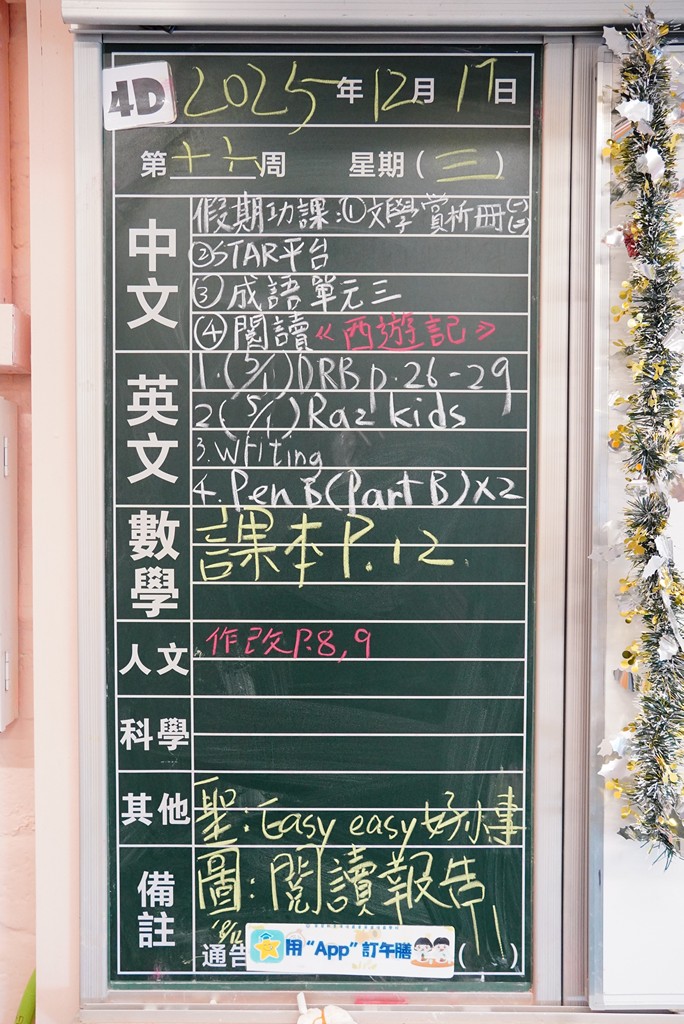 4D 2025年12月17日
第十六周 星期(三)
中文
假期功課:①文學賞析冊(一)(二)
②STAR平台
③成語單元三
④閱讀《西遊記》
英文
1.(5/1)DRB p.26-29
2(5/1)Raz kids
3.Writing
4.Pen B(Part B)×2
數學
課本P.12
人文
作改P.8,9
科學
其他
聖:Easy easy好小事
備註
圖:閱讀報告
18/12
通告
用“App”訂午膳
(11)